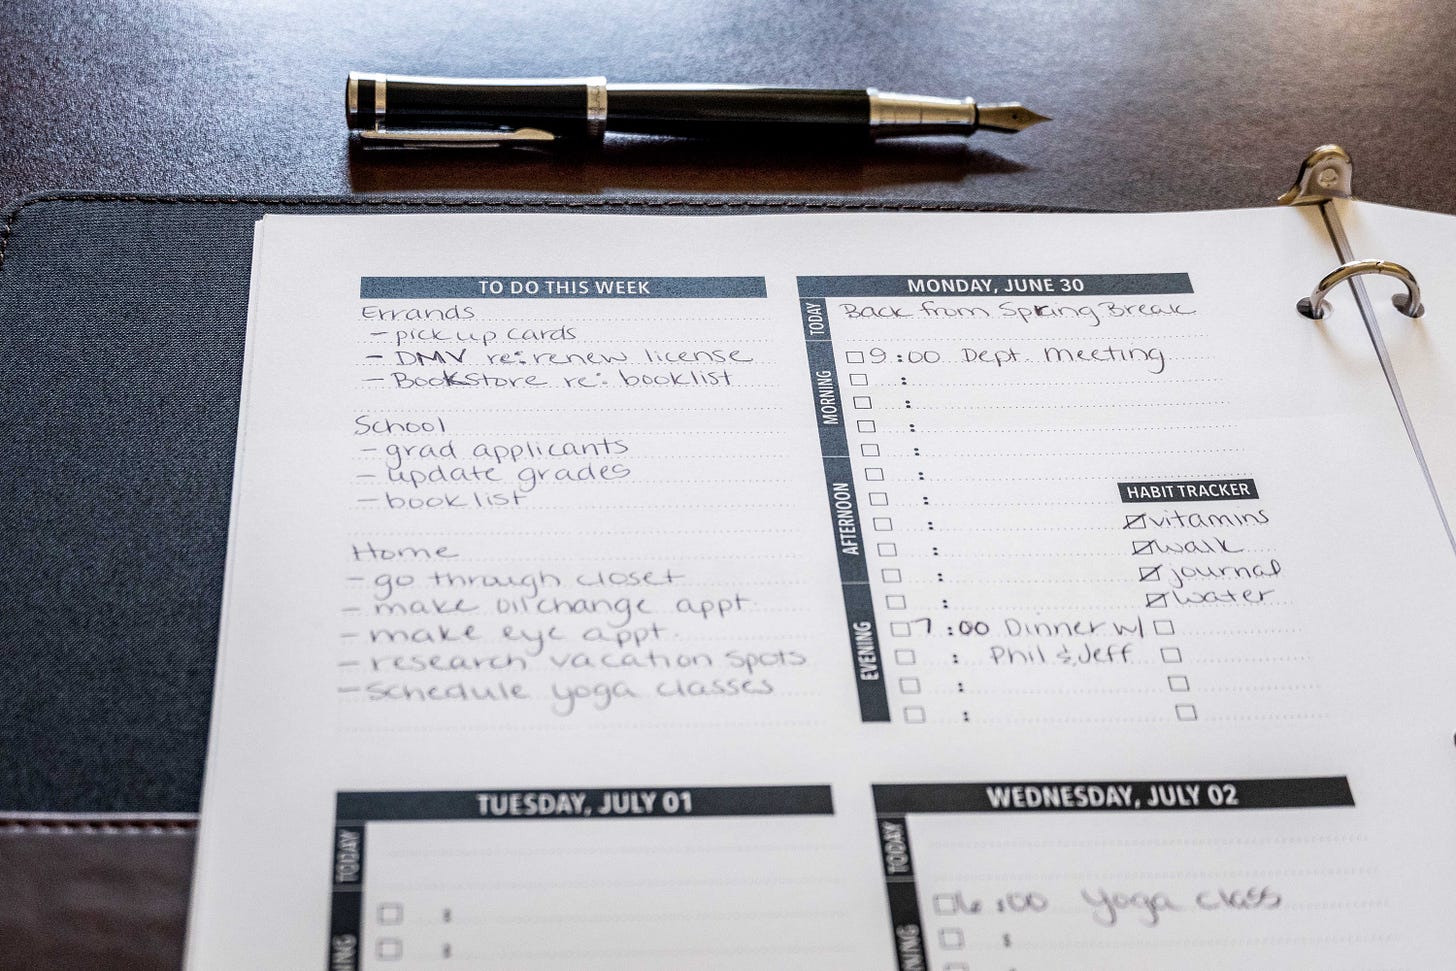 TO DO THIS WEEK
Errands
- pick up cards
- DMV re: renew license
- Bookstore re: booklist
School
- grad applicants
- update grades
- booklist
Home
- go through closet
- make oil change appt.
- make eye appt.
- research vacation spots
- schedule yoga classes
MONDAY, JUNE 30
TODAY
Back from Spring Break
MORNING
9:00 Dept. Meeting
AFTERNOON
HABIT TRACKER
vitamins
walk
journal
water
EVENING
7:00 Dinner w/
Phil & Jeff
TUESDAY, JULY 01
TODAY
WEDNESDAY, JULY 02
TODAY
6:00 Yoga class